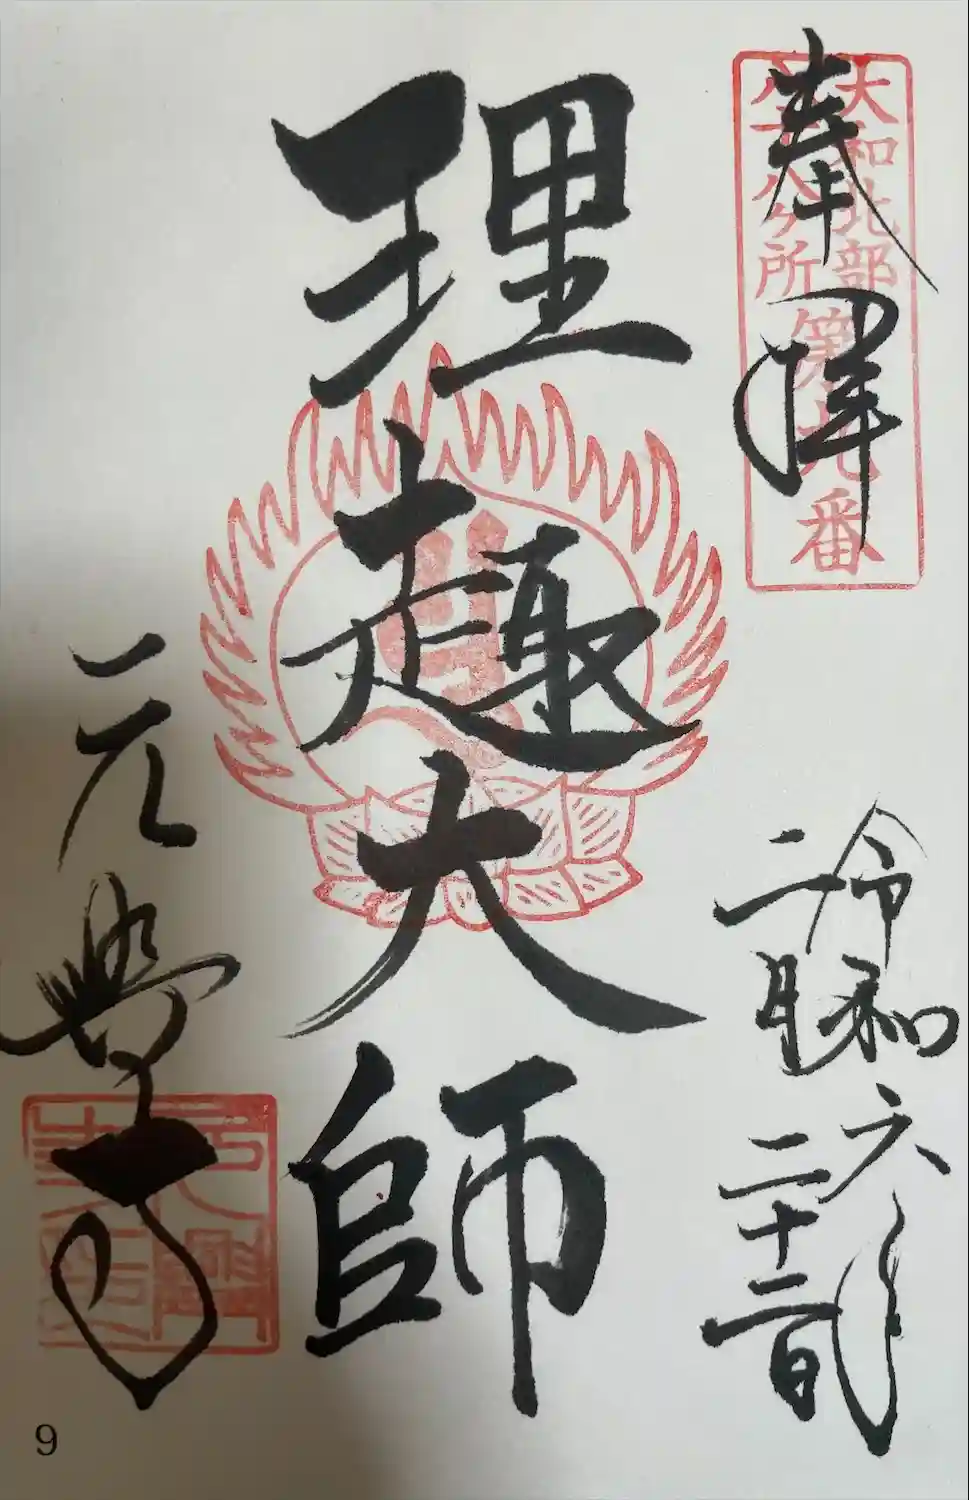 奉拝
大和北部
八十八ヶ所
第九番
令和六年
二月二十二日
理趣大師
元興寺
9